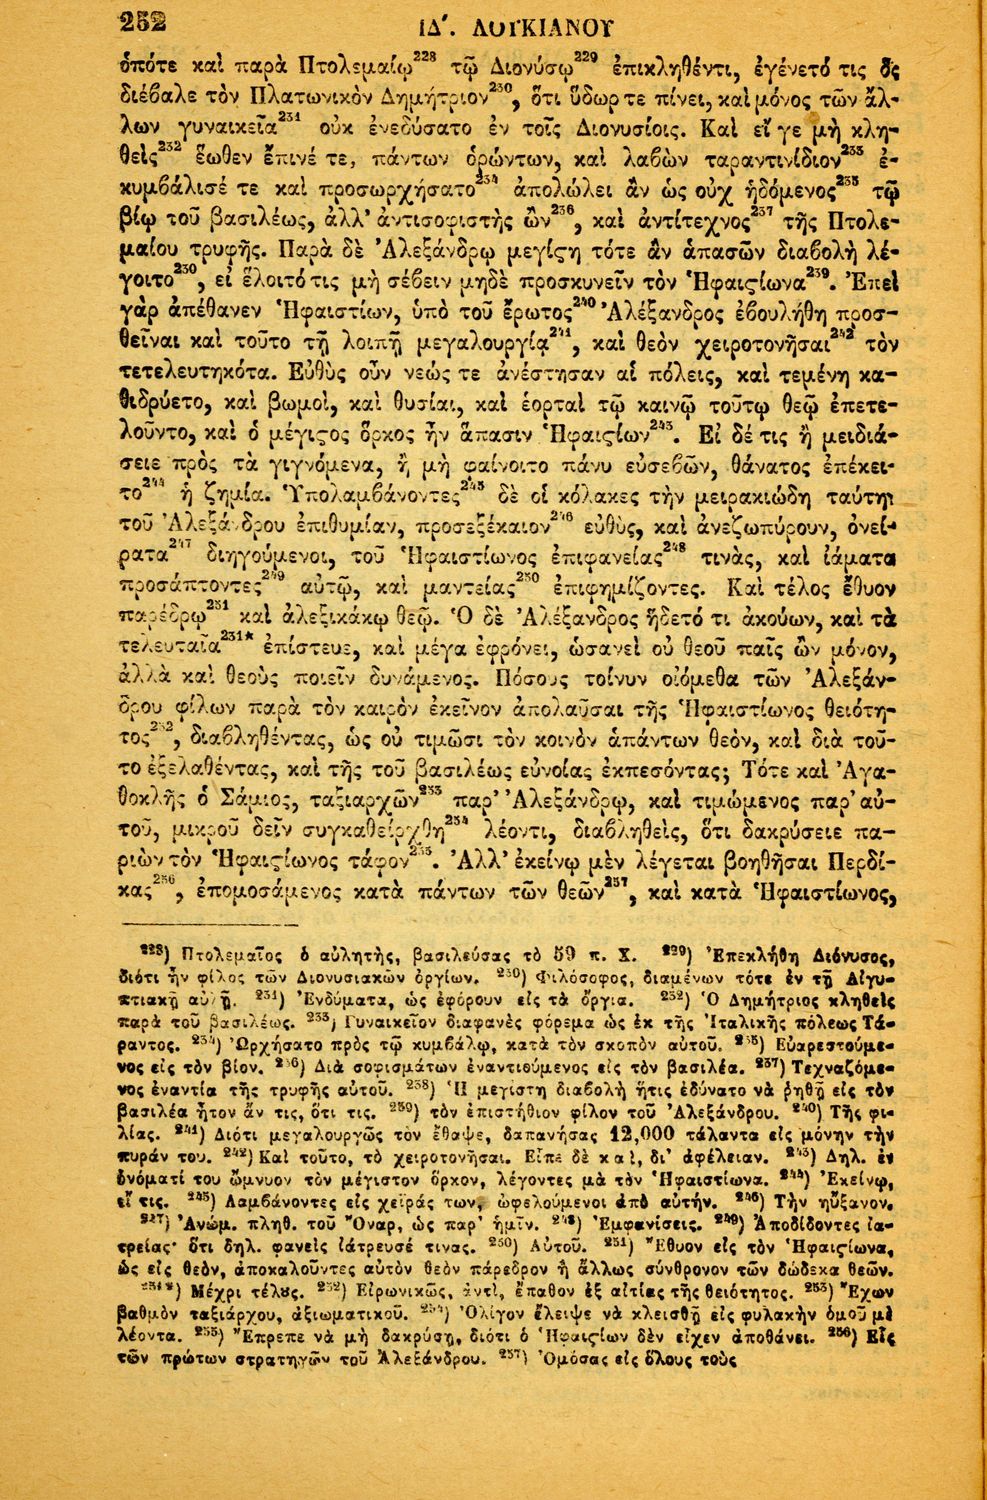 252
ΙΔ΄. ΛΟΥΚΙΑΝΟΥ
ὁπότε καὶ παρὰ Πτολεμαίῳ²²⁸ τῷ Διονύσῳ²²⁹ ἐπικληθέντι, ἐγένετό τις ὃς
διέβαλε τὸν Πλατωνικὸν Δημήτριον²³⁰, ὅτι ὕδωρ τε πίνει, καὶ μόνος τῶν ἄλ-
λων γυναικεῖα²³¹ οὐκ ἐνεδύσατο ἐν τοῖς Διονυσίοις. Καὶ εἴ γε μὴ κλη-
θεὶς²³² ἕωθεν ἔπινέ τε, πάντων ὁρώντων, καὶ λαβὼν ταραντινίδιον²³³ ἐ-
κυμβάλισέ τε καὶ προσωρχήσατο²³⁴ ἀπολώλει ἂν ὡς οὐχ ἡδόμενος²³⁵ τῷ
βίῳ τοῦ βασιλέως, ἀλλ' ἀντισοφιστὴς ὢν²³⁶, καὶ ἀντίτεχνος²³⁷ τῆς Πτολε-
μαίου τρυφῆς. Παρὰ δὲ Ἀλεξάνδρῳ μεγίϛη τότε ἂν ἁπασῶν διαβολὴ λέ-
γοιτο²³⁰, εἰ ἕλοιτό τις μὴ σέβειν μηδὲ προσκυνεῖν τὸν Ἡφαιϛίωνα²³⁹. Ἐπεὶ
γὰρ ἀπέθανεν Ἡφαιστίων, ὑπὸ τοῦ ἔρωτος²⁴⁰ Ἀλέξανδρος ἐβουλήθη προσ-
θεῖναι καὶ τοῦτο τῇ λοιπῇ μεγαλουργίᾳ²⁴¹, καὶ θεὸν χειροτονῆσαι²⁴² τὸν
τετελευτηκότα. Εὐθὺς οὖν νεώς τε ἀνέστησαν αἱ πόλεις, καὶ τεμένη κα-
θιδρύετο, καὶ βωμοὶ, καὶ θυσίαι, καὶ ἑορταὶ τῷ καινῷ τούτῳ θεῷ ἐπετε-
λοῦντο, καὶ ὁ μέγιϛος ὅρκος ἦν ἅπασιν Ἡφαιϛίων²⁴³. Εἰ δέ τις ἢ μειδιά-
σειε πρὸς τὰ γιγνόμενα, ἢ μὴ φαίνοιτο πάνυ εὐσεβῶν, θάνατος ἐπέκει-
το²⁴⁴ ἡ ζημία. Ὑπολαμβάνοντες²⁴⁵ δὲ οἱ κόλακες τὴν μειρακιώδη ταύτην
τοῦ Ἀλεξάνδρου ἐπιθυμίαν, προσεξέκαιον²⁴⁶ εὐθὺς, καὶ ἀνεζωπύρουν, ὀνεί-
ρατα²⁴⁷ διηγούμενοι, τοῦ Ἡφαιστίωνος ἐπιφανείας²⁴⁸ τινὰς, καὶ ἰάματα
προσάπτοντες²⁴⁹ αὐτῷ, καὶ μαντείας²⁵⁰ ἐπιφημίζοντες. Καὶ τέλος ἔθυον
παρέδρῳ²⁵¹ καὶ ἀλεξικάκῳ θεῷ. Ὁ δὲ Ἀλέξανδρος ἥδετό τι ἀκούων, καὶ τὰ
τελευταῖα²⁵¹* ἐπίστευε, καὶ μέγα ἐφρόνει, ὡσανεὶ οὐ θεοῦ παῖς ὢν μόνον,
ἀλλὰ καὶ θεοὺς ποιεῖν δυνάμενος. Πόσους τοίνυν οἰόμεθα τῶν Ἀλεξάν-
δρου φίλων παρὰ τὸν καιρὸν ἐκεῖνον ἀπολαῦσαι τῆς Ἡφαιστίωνος θειότη-
τος²⁵², διαβληθέντας, ὡς οὐ τιμῶσι τὸν κοινὸν ἁπάντων θεὸν, καὶ διὰ τοῦ-
το ἐξελαθέντας, καὶ τῆς τοῦ βασιλέως εὐνοίας ἐκπεσόντας; Τότε καὶ Ἀγα-
θοκλῆς ὁ Σάμιος, ταξιαρχῶν²⁵³ παρ' Ἀλεξάνδρῳ, καὶ τιμώμενος παρ' αὐ-
τοῦ, μικροῦ δεῖν συγκαθείρχθη²⁵⁴ λέοντι, διαβληθεὶς, ὅτι δακρύσειε πα-
ριὼν τὸν Ἡφαιϛίωνος τάφον²⁵⁵. Ἀλλ' ἐκείνῳ μὲν λέγεται βοηθῆσαι Περδί-
κας²⁵⁶, ἐπομοσάμενος κατὰ πάντων τῶν θεῶν²⁵⁷, καὶ κατὰ Ἡφαιστίωνος,
²²⁸) Πτολεμαῖος ὁ αὐλητὴς, βασιλεύσας τὸ 59 π. Χ. ²²⁹) Ἐπεκλήθη Διόνυσος,
διότι ἦν φίλος τῶν Διονυσιακῶν ὀργίων. ²³⁰) Φιλόσοφος, διαμένων τότε ἐν τῇ Αἰγυ-
πτιακῇ αὐλῇ. ²³¹) Ἐνδύματα, ὡς ἐφόρουν εἰς τὰ ὄργια. ²³²) Ὁ Δημήτριος κληθεὶς
παρὰ τοῦ βασιλέως. ²³³) Γυναικεῖον διαφανὲς φόρεμα ὡς ἐκ τῆς Ἰταλικῆς πόλεως Τά-
ραντος. ²³⁴) Ὠρχήσατο πρὸς τῷ κυμβάλῳ, κατὰ τὸν σκοπὸν αὐτοῦ. ²³⁵) Εὐαρεστούμε-
νος εἰς τὸν βίον. ²³⁶) Διὰ σοφισμάτων ἐναντιούμενος εἰς τὸν βασιλέα. ²³⁷) Τεχναζόμε-
νος ἐναντία τῆς τρυφῆς αὐτοῦ. ²³⁸) Ἡ μεγίστη διαβολὴ ἥτις ἐδύνατο νὰ ῥηθῇ εἰς τὸν
βασιλέα ἦτον ἄν τις, ὅτι τις. ²³⁹) τὸν ἐπιστήθιον φίλον τοῦ Ἀλεξάνδρου. ²⁴⁰) Τῆς φι-
λίας. ²⁴¹) Διότι μεγαλουργῶς τὸν ἔθαψε, δαπανήσας 12,000 τάλαντα εἰς μόνην τὴν
πυράν του. ²⁴²) Καὶ τοῦτο, τὸ χειροτονῆσαι. Εἶπε δὲ καὶ, δι' ἀφέλειαν. ²⁴³) Δηλ. ἐν
ὀνόματί του ὤμνυον τὸν μέγιστον ὅρκον, λέγοντες μὰ τὸν Ἡφαιστίωνα. ²⁴⁴) Ἐκείνῳ,
εἴ τις. ²⁴⁵) Λαμβάνοντες εἰς χεῖράς των, ὠφελούμενοι ἀπὸ αὐτήν. ²⁴⁶) Τὴν ηὔξανον.
²⁴⁷) Ἀνώμ. πληθ. τοῦ Ὄναρ, ὡς παρ' ἡμῖν. ²⁴⁸) Ἐμφανίσεις. ²⁴⁹) Ἀποδίδοντες ἰα-
τρείας· ὅτι δηλ. φανεὶς ἰάτρευσέ τινας. ²⁵⁰) Αὐτοῦ. ²⁵¹) Ἔθυον εἰς τὸν Ἡφαιϛίωνα,
ὡς εἰς θεὸν, ἀποκαλοῦντες αὐτὸν θεὸν πάρεδρον ἢ ἄλλως σύνθρονον τῶν δώδεκα θεῶν.
²⁵¹*) Μέχρι τέλους. ²⁵²) Εἰρωνικῶς, ἀντὶ, ἔπαθον ἐξ αἰτίας τῆς θειότητος. ²⁵³) Ἔχων
βαθμὸν ταξιάρχου, ἀξιωματικοῦ. ²⁵⁴) Ὀλίγον ἔλειψε νὰ κλεισθῇ εἰς φυλακὴν ὁμοῦ μὲ
λέοντα. ²⁵⁵) Ἔπρεπε νὰ μὴ δακρύσῃ, διότι ὁ Ἡφαιϛίων δὲν εἶχεν ἀποθάνει. ²⁵⁶) Εἷς
τῶν πρώτων στρατηγῶν τοῦ Ἀλεξάνδρου. ²⁵⁷) Ὁμόσας εἰς ὅλους τοὺς